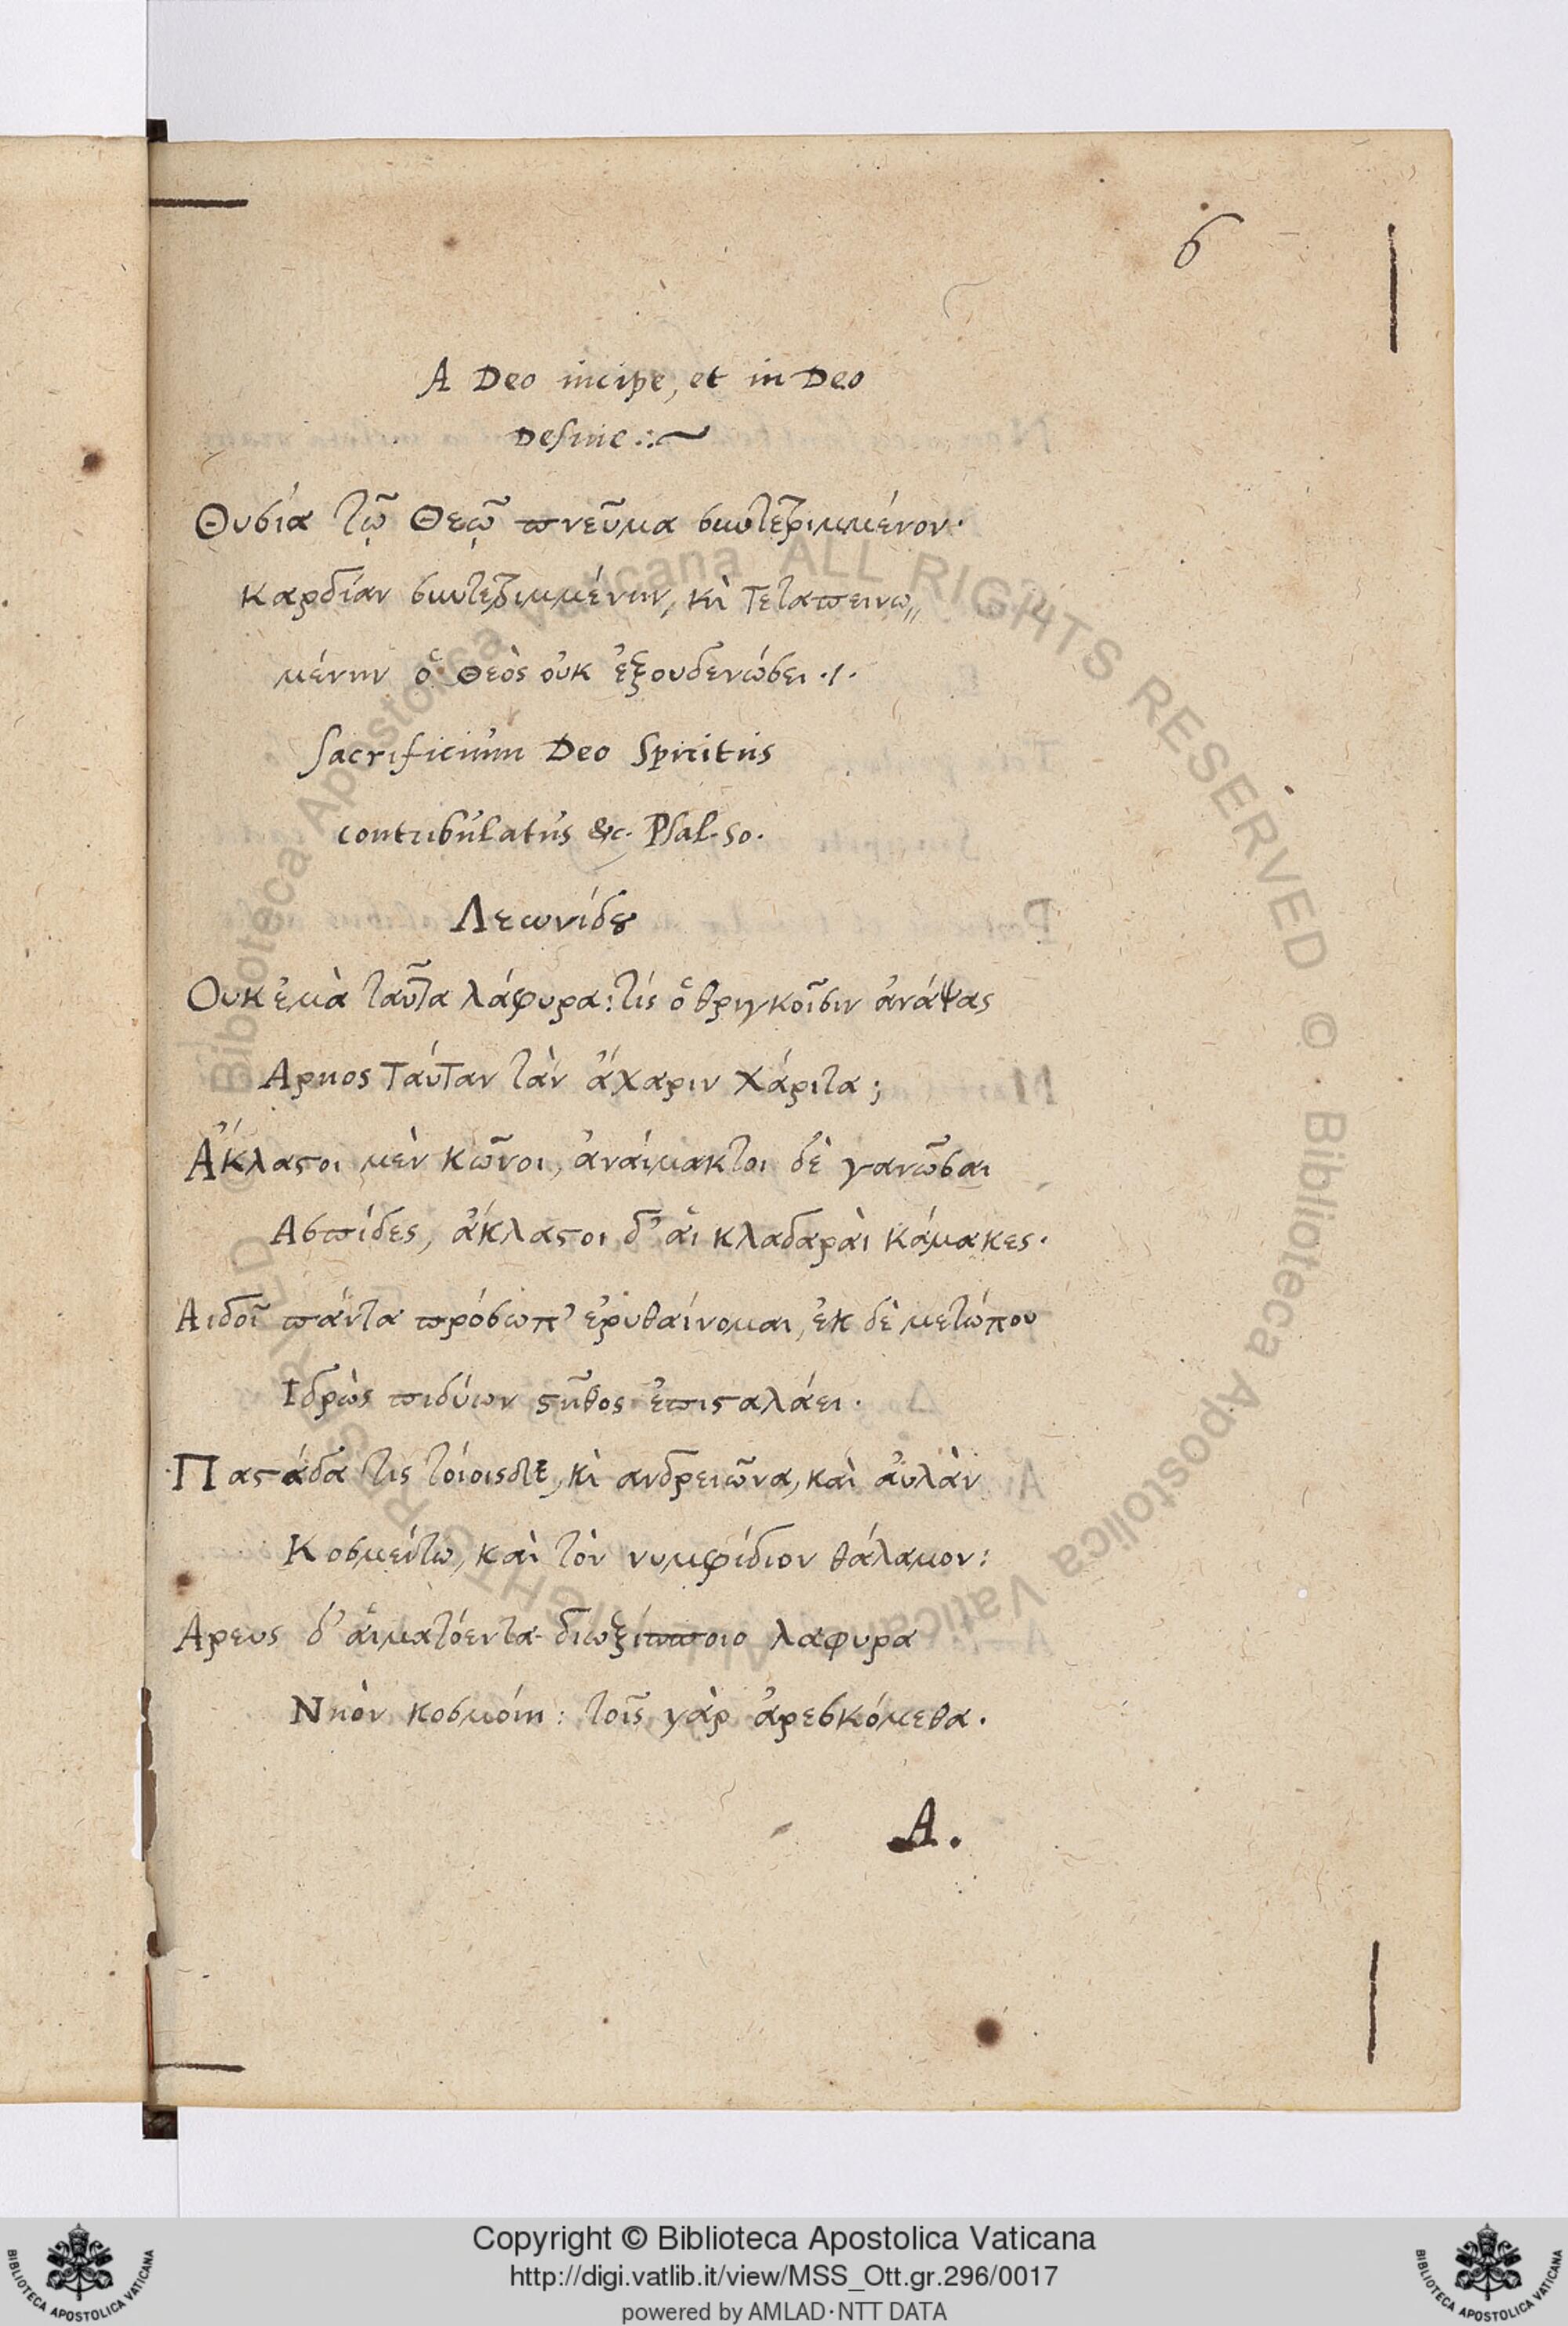 6
A Deo incipe, et in Deo
Desine:~
Θυσία τῷ Θεῷ πνεῦμα συντετριμμένον·
καρδίαν συντετριμμένην, κὶ τεταπεινω„
μένην ὁ Θεὸς οὐκ ἐξουδενώσει ·/·
Sacrificium Deo Spiritus
contribulatus &c. Psal. 50.
Λεωνίδȣ
Ουκ ἐμὰ ταῦτα λάφυρα: τίς ὁ θριγκοῖσιν ἀνάψας
Αρηος ταύταν τὰν ἄχαριν χάριτα;
Ἄκλαϛοι μὲν κῶνοι, ἀναίμακτοι δὲ γανῶσαι
Ασπίδες, ἄκλαϛοι δ' ἁι κλαδαρὰι κάμακες·
Αιδοῖ πάντα πρόσωπ' ἐρυθαίνομαι, ἐκ δὲ μετώπου
Ιδρὼς πιδύων ϛῆθος ἐπιϛαλάει·
Παϛάδα τις τόιοισδε, κὶ ανδρειῶνα, καὶ ἀυλὰν
Κοσμείτω, κὰι τὸν νυμφίδιον θάλαμον:
Αρευς δ' ἁιματόεντα διωξίπποιο λαφυρα
Νηὸν κοσμόιη: τοῖς γὰρ ἀρεσκόμεθα.
A.
Copyright © Biblioteca Apostolica Vaticana
http://digi.vatlib.it/view/MSS_Ott.gr.296/0017
powered by AMLAD·NTT DATA
BIBLIOTECA APOSTOLICA VATICANA
BIBLIOTECA APOSTOLICA VATICANA
Biblioteca Apostolica Vaticana ALL RIGHTS RESERVED © Biblioteca Apostolica Vaticana ALL RIGHTS RESERVED ©